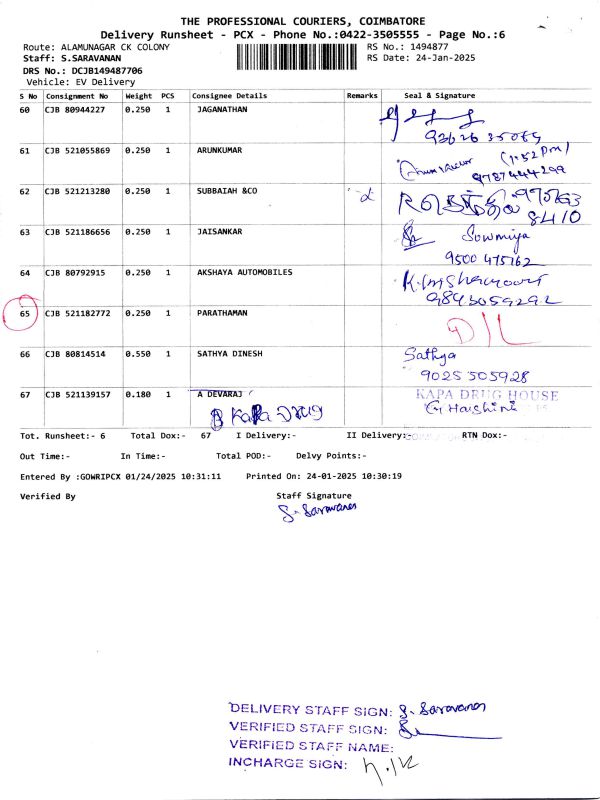 THE PROFESSIONAL COURIERS, COIMBATORE
Delivery Runsheet - PCX - Phone No.:0422-3505555 - Page No.:6
Route: ALAMUNAGAR CK COLONY RS No.: 1494877
Staff: S.SARAVANAN RS Date: 24-Jan-2025
DRS No.: DCJB149487706
Vehicle: EV Delivery
S No Consignment No Weight PCS Consignee Details Remarks Seal & Signature
60 CJB 80944227 0.250 1 JAGANATHAN
61 CJB 521055869 0.250 1 ARUNKUMAR (1:52 Pm)
9787444299
62 CJB 521213280 0.250 1 SUBBAIAH &CO
8410
63 CJB 521186656 0.250 1 JAISANKAR Sowmiya
9500 475162
64 CJB 80792915 0.250 1 AKSHAYA AUTOMOBILES
9843059292
65 CJB 521182772 0.250 1 PARATHAMAN D/L
66 CJB 80814514 0.550 1 SATHYA DINESH Sathya
9025 505928
67 CJB 521139157 0.180 1 A DEVARAJ KAPA DRUG HOUSE
KAPA Drug G Harshini
Tot. Runsheet:- 6 Total Dox:- 67 I Delivery:- II Delivery:- RTN Dox:-
Out Time:- In Time:- Total POD:- Delvy Points:-
Entered By :GOWRIPCX 01/24/2025 10:31:11 Printed On: 24-01-2025 10:30:19
Verified By Staff Signature
S. Saravanan
DELIVERY STAFF SIGN: S. Saravanan
VERIFIED STAFF SIGN:
VERIFIED STAFF NAME:
INCHARGE SIGN: